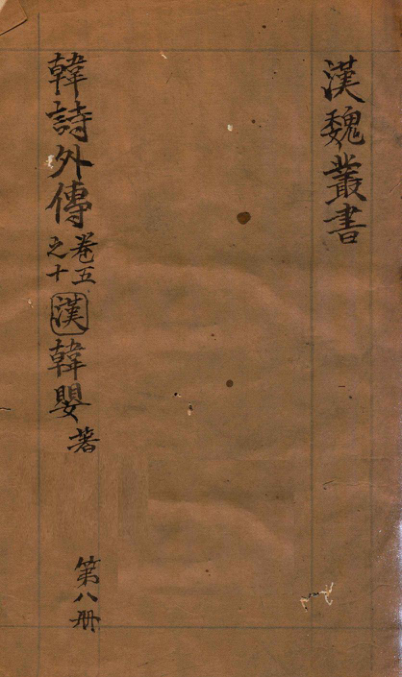 漢魏叢書
韓詩外傳卷五之十漢韓嬰著
第八冊